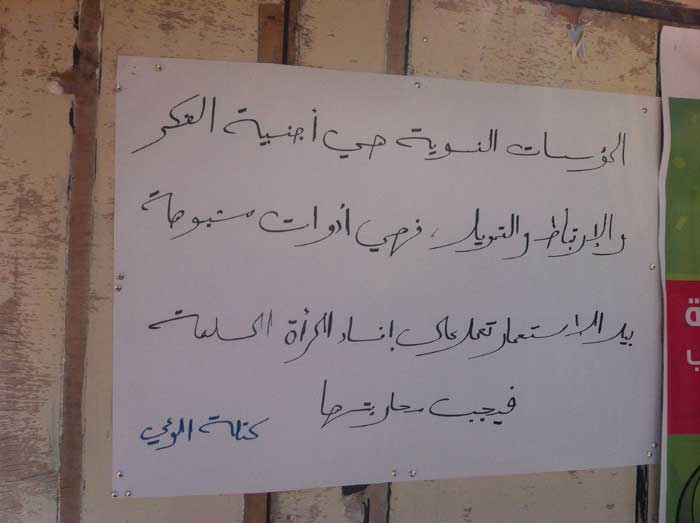 المؤسسات النسوية هي أجنبية الفكر
والإرتباط والتمويل، فهي أدوات مشبوهة
بيد الاستعمار تعمل على إفساد المرأة المسلمة
فيجب محاربتها
كتلة الوعي
ة
ب